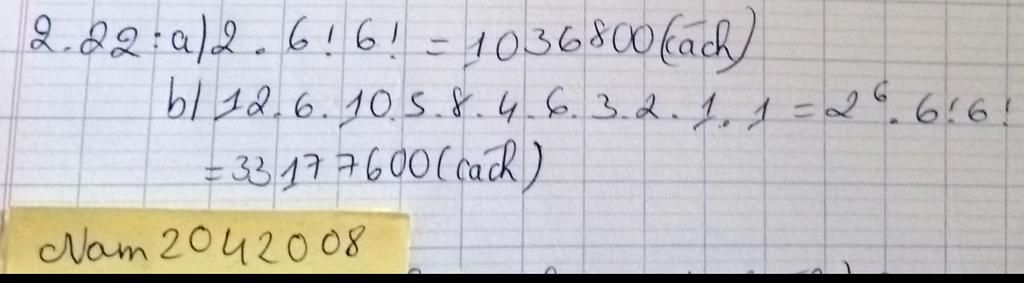 2.22: a) 2 . 6! 6! = 1036800 (cách)
b) 12.6.10.5.8.4.6.3.2.1.1 = 2^6 . 6! 6!
= 33177600 (cách)
Nam 2042008